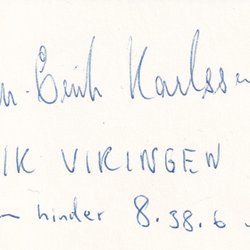 -Erik Karlss
IK VIKINGEN
m hinder 8.38.6